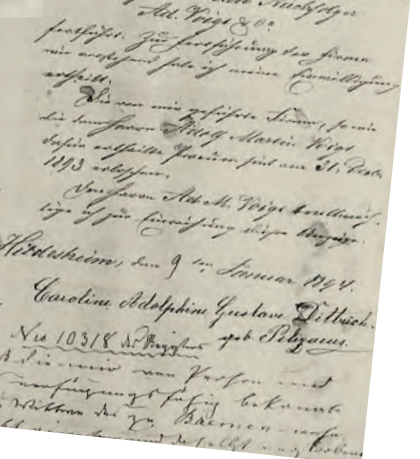 Nachfolger
Ad. Voigt & Co
fortführt. Zur Fortführung der Firma
wie vorstehend habe ich meine Einwilligung
ertheilt.
Die von mir geführte Firma, sowie
die dem Herrn Adolf Martin Voigt
dafür ertheilte Procura sind am 31. Decbr.
1893 erloschen.
Den Herrn Ad. M. Voigt bevollmäch-
tige ich zur Einreichung dieser Anzeige.
Hildesheim, den 9ten Januar 1894.
Caroline Adolphine Gustave Dittrich
geb. Pelizaeus.
Nro 10318 des Registers
die mir von Person und
verfügungsfähig bekannte
Wittwe des zu Barmen